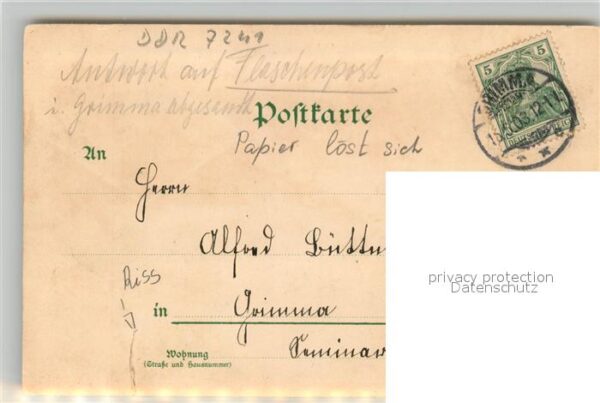 DDR 7241
Antwort auf Flaschenpost
i. Grimma abgesandt
Postkarte
Papier löst sich
An
Herrn
Alfred Büttn
Riss
in Grimma
Seminar
Wohnung
(Straße und Hausnummer)
5 5
GRIMMA
privacy protection
Datenschutz